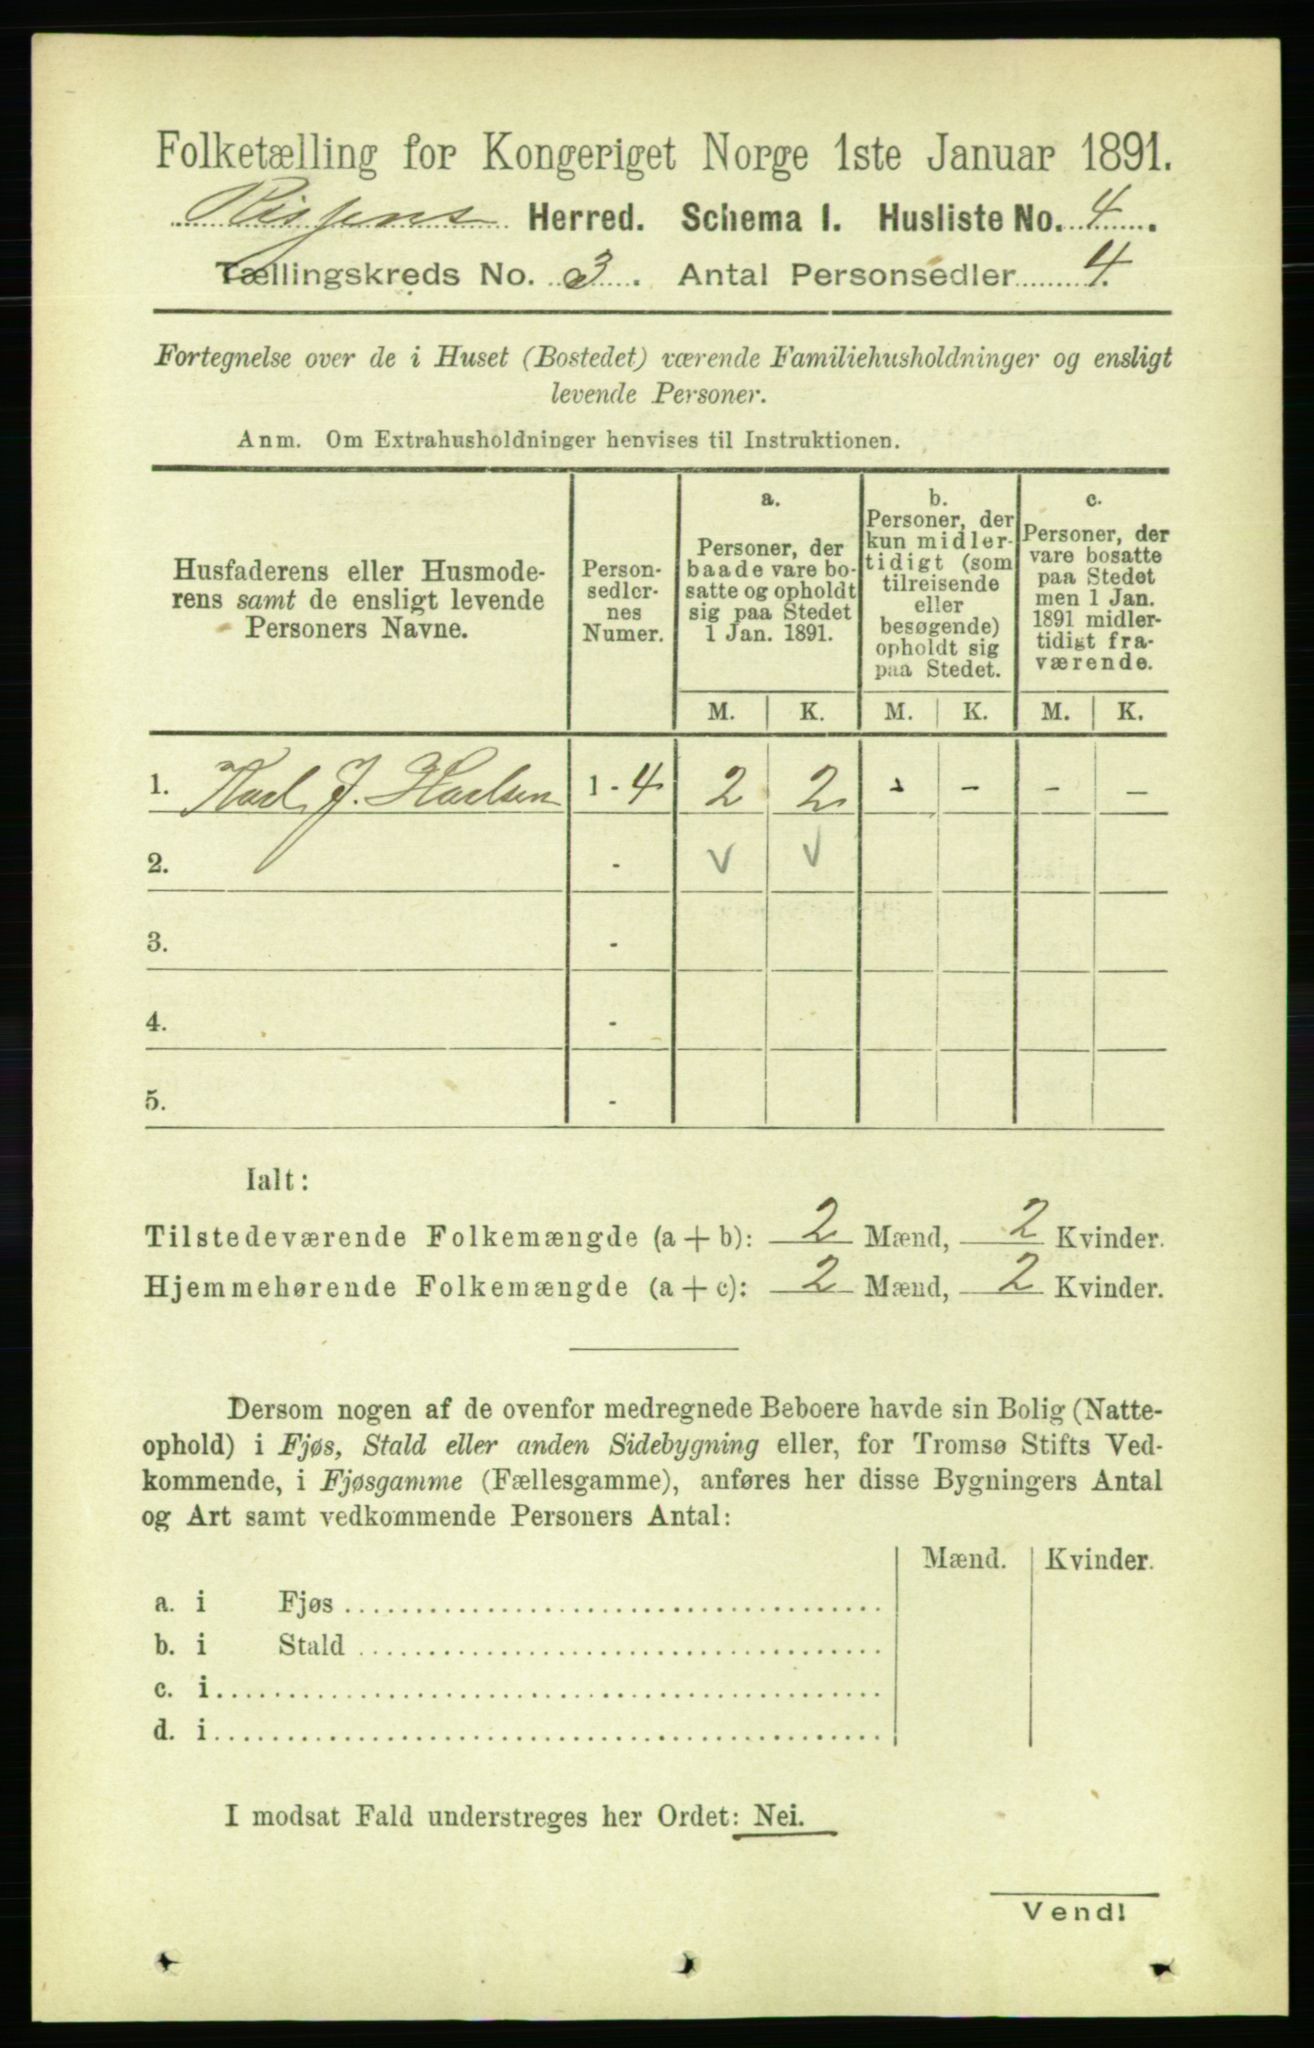 Folketælling for Kongeriget Norge 1ste Januar 1891.
Rissens Herred. Schema 1. Husliste No. 4.
Tællingskreds No. 3. Antal Personsedler 4.
Fortegnelse over de i Huset (Bostedet) værende Familiehusholdninger og ensligt
levende Personer.
Anm. Om Extrahusholdninger henvises til Instruktionen.
Husfaderens eller Husmode-
rens samt de ensligt levende
Personers Navne.
Person-
sedler-
nes
Numer.
a.
Personer, der
baade vare bo-
satte og opholdt
sig paa Stedet
1 Jan. 1891.
b.
Personer, der
kun midler-
tidigt (som
tilreisende
eller
besøgende)
opholdt sig
paa Stedet.
c.
Personer, der
vare bosatte
paa Stedet
men 1 Jan.
1891 midler-
tidigt fra-
værende.
M. K. M. K. M. K.
1. J. 1 - 4 2 2 - - - -
2. - v v
3. -
4. -
5. -
Ialt:
Tilstedeværende Folkemængde (a + b): 2 Mænd, 2 Kvinder.
Hjemmehørende Folkemængde (a + c): 2 Mænd, 2 Kvinder.
Dersom nogen af de ovenfor medregnede Beboere havde sin Bolig (Natte-
ophold) i Fjøs, Stald eller anden Sidebygning eller, for Tromsø Stifts Ved-
kommende, i Fjøsgamme (Fællesgamme), anføres her disse Bygningers Antal
og Art samt vedkommende Personers Antal:
Mænd. Kvinder.
a. i Fjøs
b. i Stald
c. i
d. i
I modsat Fald understreges her Ordet: Nei.
Vend!